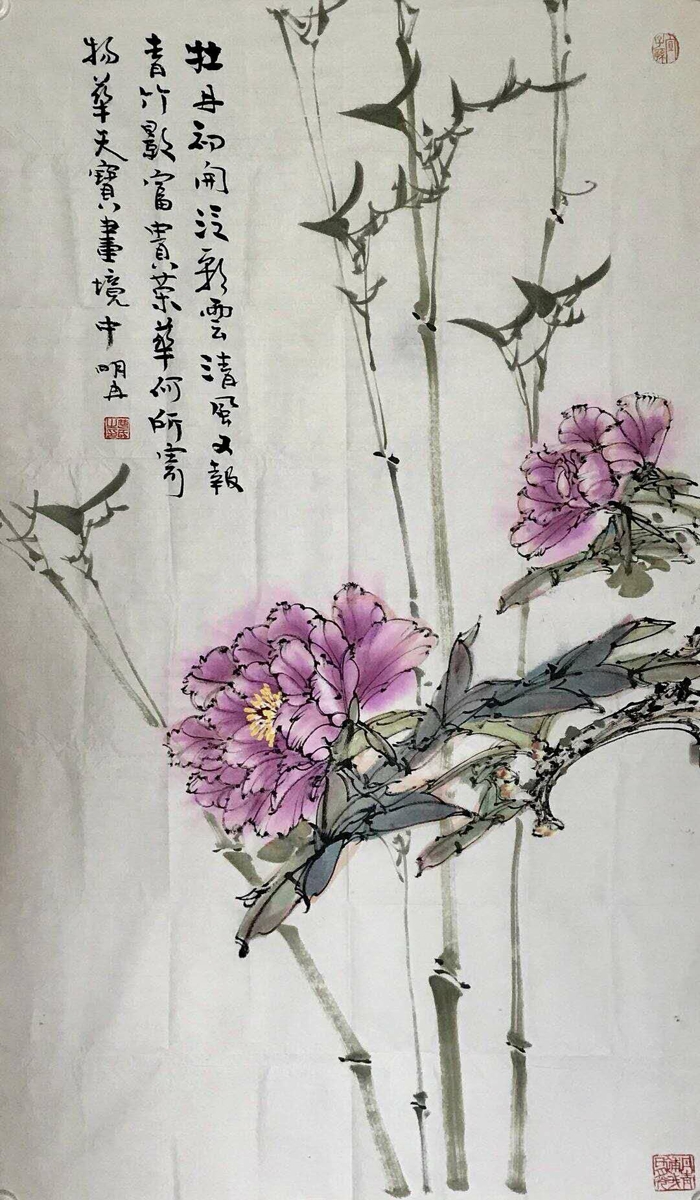 牡丹初開泛彩雲清風又報
青竹影富貴荣華何所寄
物華天寶畫境中 明丹